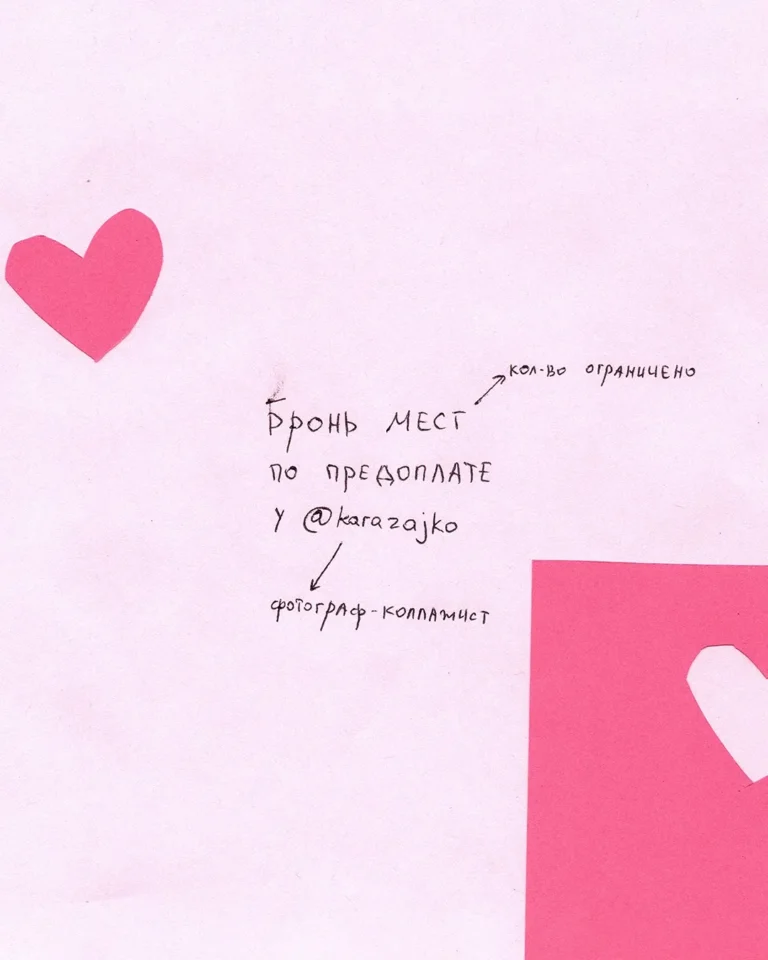 кол-во ограничено
Бронь мест
по предоплате
у @karazajko
фотограф-коллажист